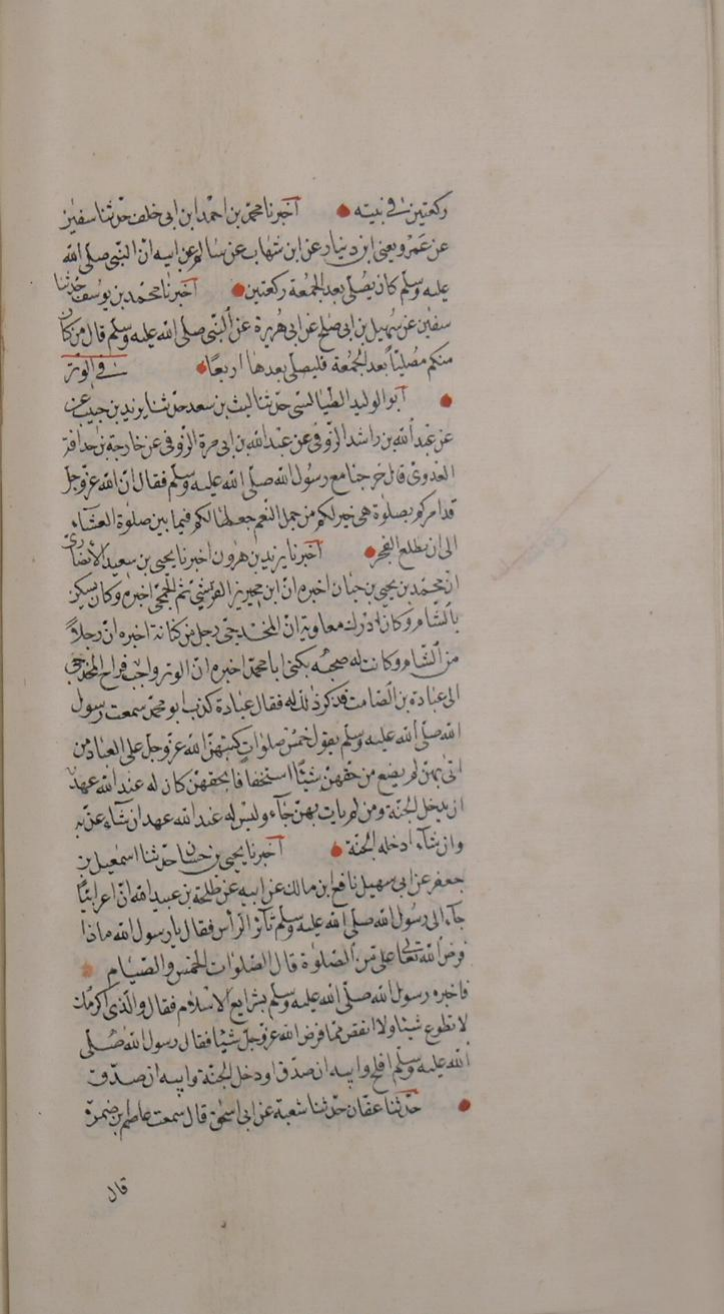 ركعتين في بيته اخبرنا محمد بن احمد ابن ابى خلف حدثنا سفين
عن عمرو يعنى ابن دينار عن ابن شهاب عن سالم عن ابيه ان النبى صلى الله
عليه وسلم كان يصلى بعد الجمعة ركعتين اخبرنا محمد بن يوسف حدثنا
سفين عن سهيل بن ابى صلح عن ابى هريرة عن النبى صلى الله عليه وسلم قال من كان
منكم مصليا بعد الجمعة فليصلى بعدها اربعا في الوتر
ابو الوليد الطيالسى حدثنا ليث بن سعد حدثنا يزيد بن حبيب عن
عن عبد الله بن راشد الزوفى عن عبد الله بن ابى مرة الزوفى عن خارجة بن حذافة
العدوى قال خرجنا مع رسول الله صلى الله عليه وسلم فقال ان الله عز وجل
قد امركم بصلوة هى خير لكم من حمر النعم جعلها لكم فيما بين صلوة العشاء
الى ان يطلع الفجر اخبرنا يزيد بن هرون اخبرنا يحيى بن سعيد الانصارى
ان محمد بن يحيى بن حبان اخبره ان ابن محيريز القرشى ثم الجمحى اخبره وكان يسكن
بالشام وكان ادرك معاوية ان المخدجى رجل من كنانة اخبره ان رجلا
من الشام وكانت له صحبة يكنى ابا محمد اخبره ان الوتر واجب فراح المخدجى
الى عبادة بن الصامت فذكر ذلك له فقال عبادة كذب ابو محمد سمعت رسول
الله صلى الله عليه وسلم يقول خمس صلوات كتبهن الله عز وجل على العباد من
اتى بهن لم يضع من حقهن شيئا استخفافا بحقهن كان له عند الله عهد
ان يدخل الجنة ومن لم يات بهن جاء وليس له عند الله عهد ان شاء عذبه
وان شاء ادخله الجنة اخبرنا يحيى بن حسان حدثنا اسمعيل بن
جعفر عن ابى سهيل نافع ابن مالك عن ابيه عن طلحة بن عبيد الله ان اعرابيا
جاء الى رسول الله صلى الله عليه وسلم ثائر الرأس فقال يا رسول الله ماذا
فرض الله تعالى على من الصلوة قال الصلوات الخمس والصيام
فاخبره رسول الله صلى الله عليه وسلم بشرايع الاسلام فقال والذى اكرمك
لا تطوع شيئا ولا انقص مما فرض الله عز وجل شيئا فقال رسول الله صلى
الله عليه وسلم افلح وابيه ان صدق او دخل الجنة وابيه ان صدق
حدثنا عفان حدثنا شعبة عن ابى اسحق قال سمعت عاصم بن ضمرة
قال